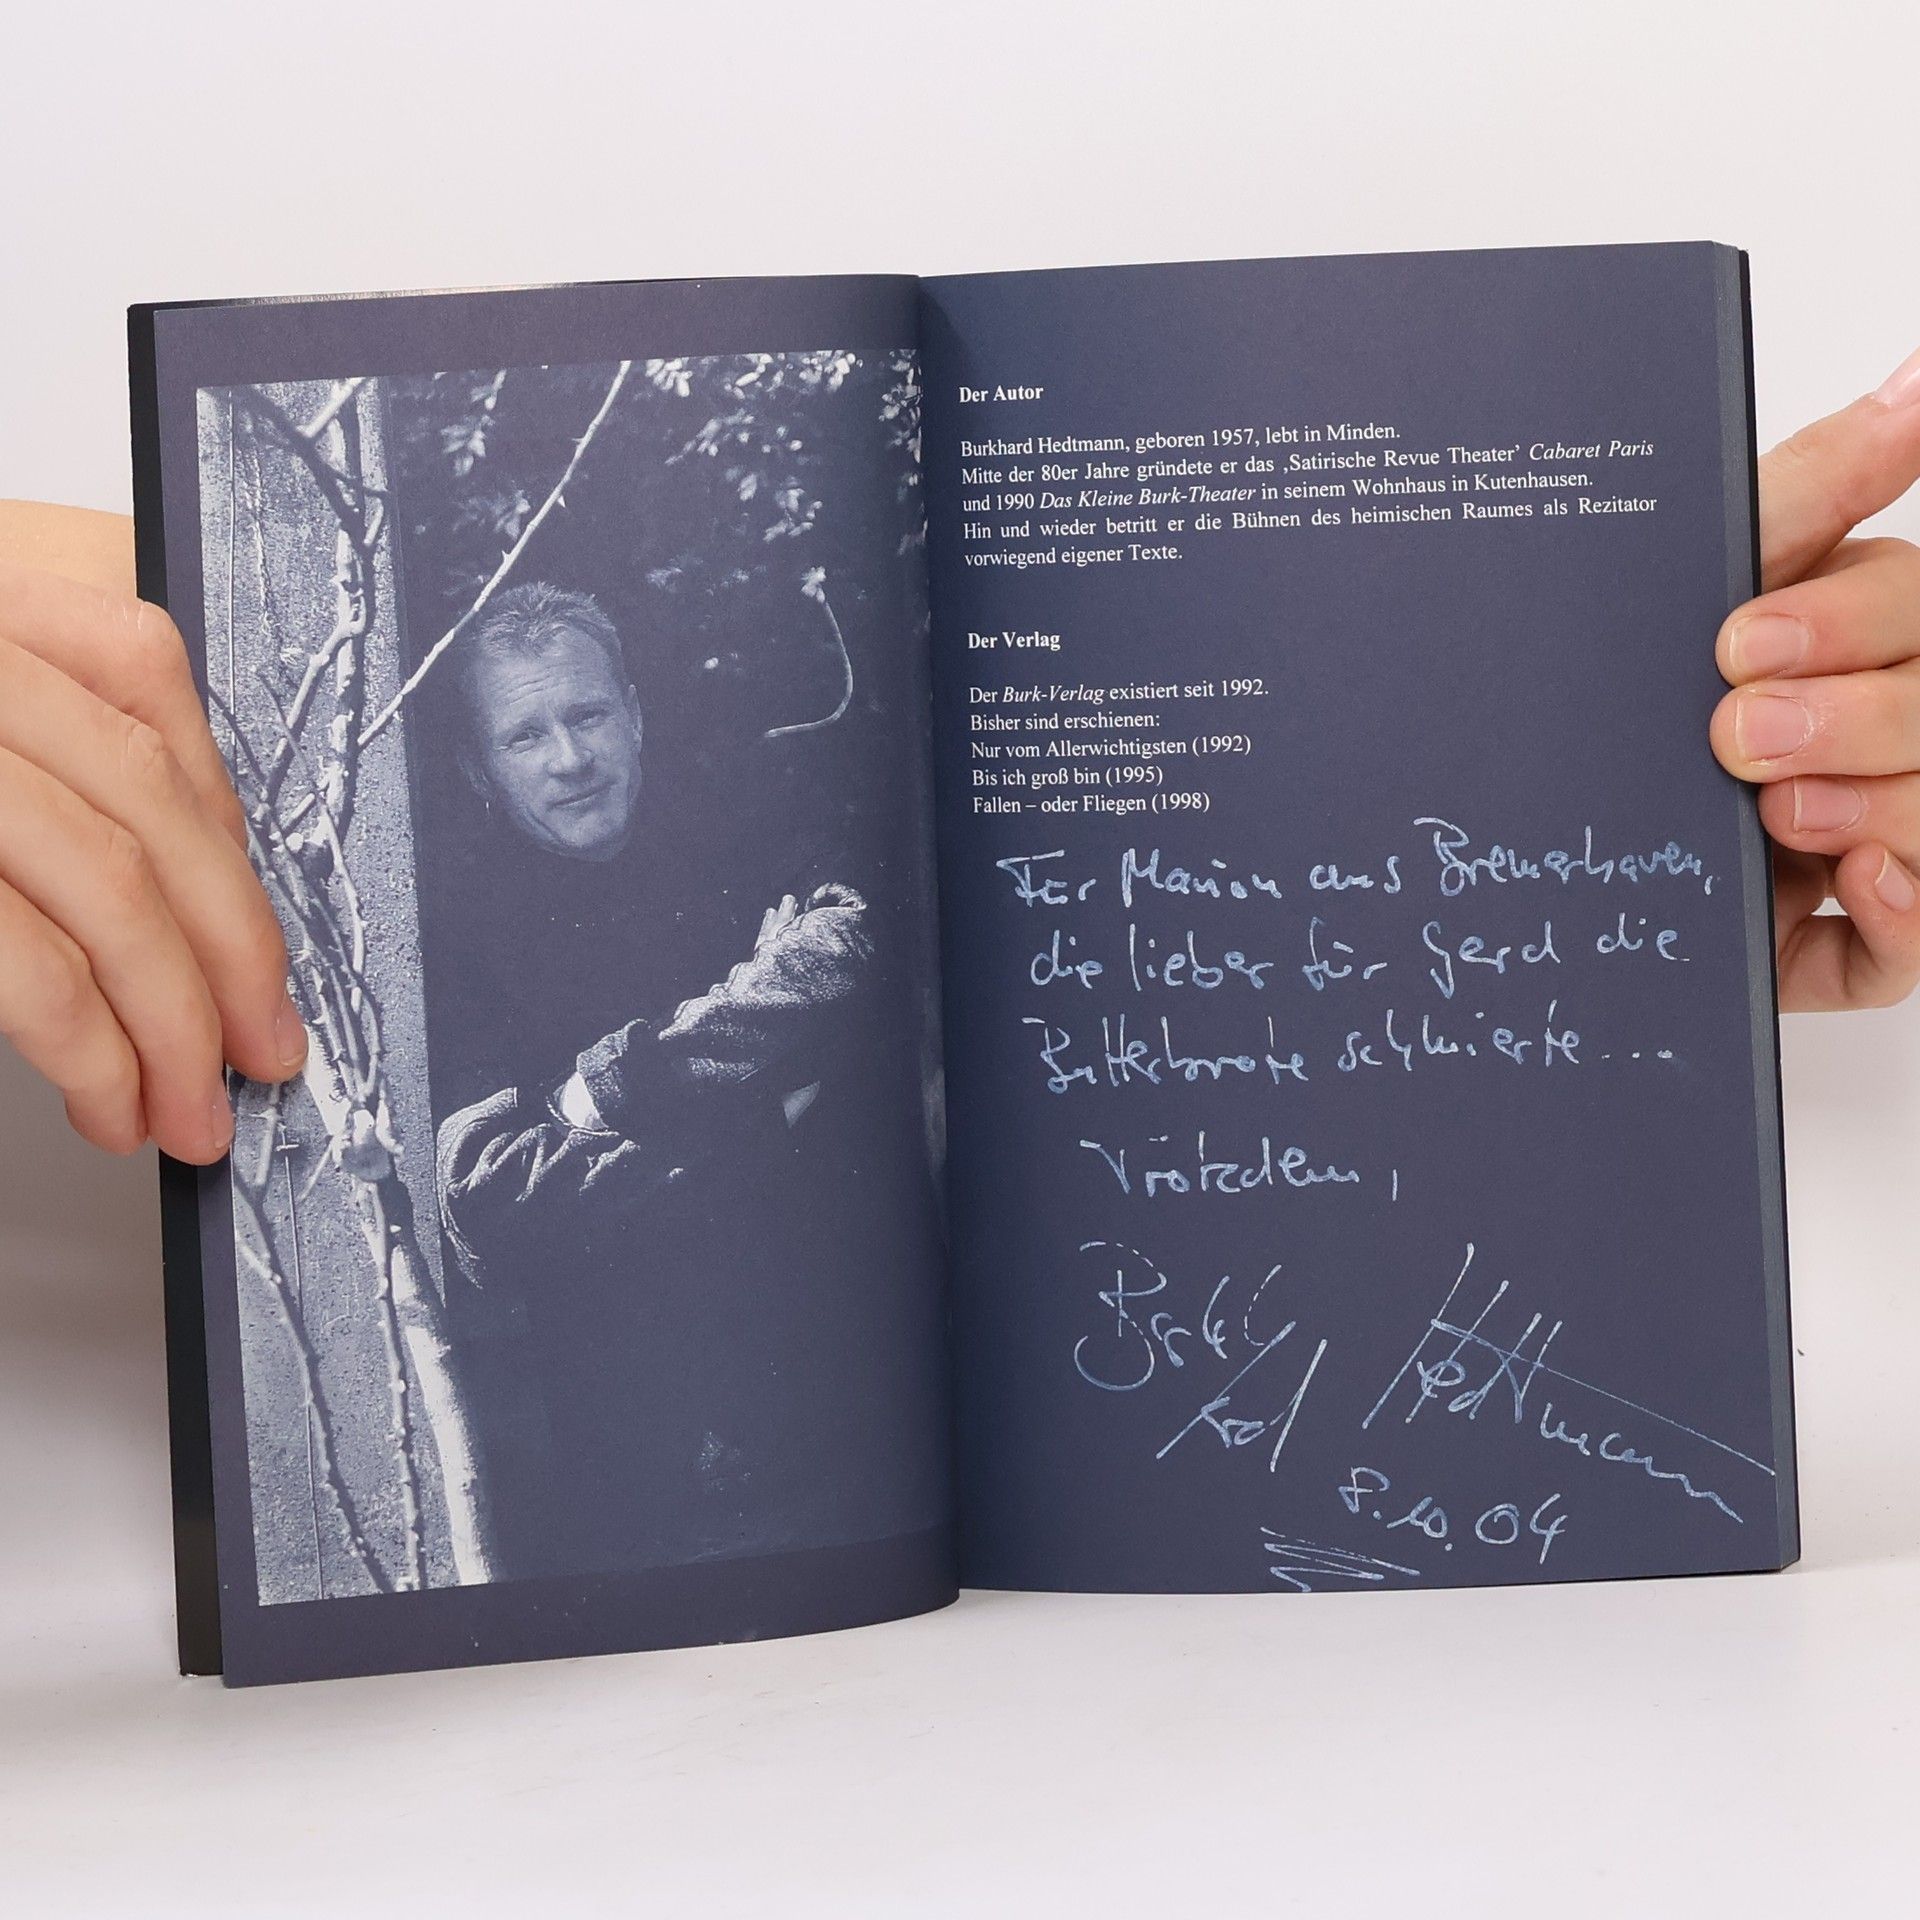 Der Autor
Burkhard Hedtmann, geboren 1957, lebt in Minden.
Mitte der 80er Jahre gründete er das ‚Satirische Revue Theater’ Cabaret Paris
und 1990 Das Kleine Burk-Theater in seinem Wohnhaus in Kutenhausen.
Hin und wieder betritt er die Bühnen des heimischen Raumes als Rezitator
vorwiegend eigener Texte.
Der Verlag
Der Burk-Verlag existiert seit 1992.
Bisher sind erschienen:
Nur vom Allerwichtigsten (1992)
Bis ich groß bin (1995)
Fallen – oder Fliegen (1998)
Für Marion aus Bremerhaven,
die lieber für Gerd die
Butterbrote schmierte...
Trötzdem,
Burk
hard Hedtmann
8.10.04